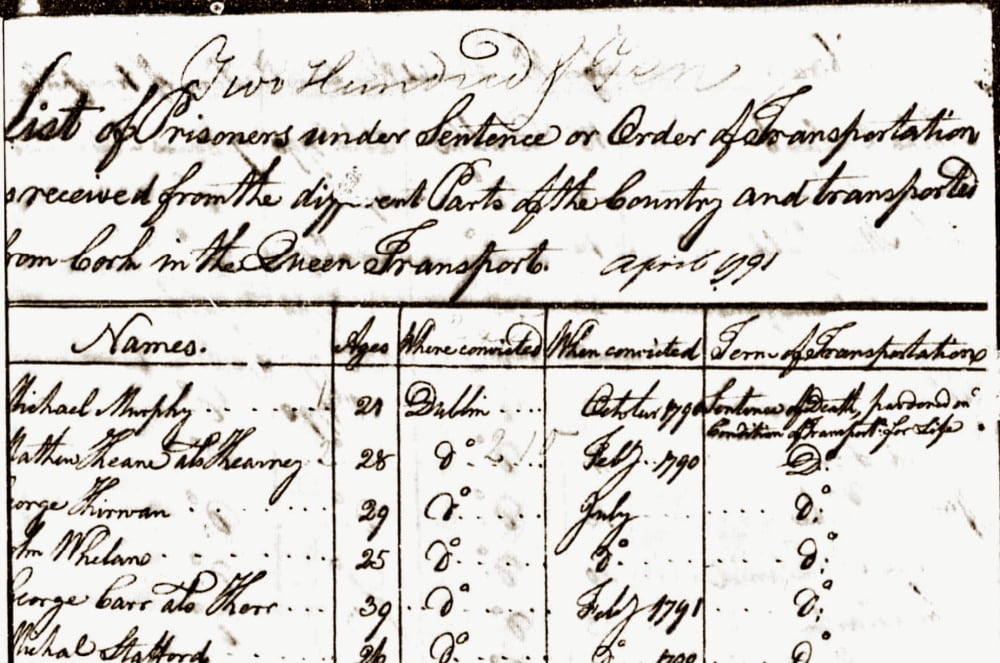 Two Hundred & Ten
List of Prisoners under Sentence or Order of Transportation
received from the different Parts of the Country and transported
from Cork in the Queen Transport. April 1791
Names. Ages Where convicted When convicted Term of Transportation
Michael Murphy 21 Dublin October 1790 Sentence of Death, pardoned in
Condition of Transport. for Life
Mathew Keane als Kearney 28 do. Feby. 1790 Do.
George Kirwan 29 do. July do.
John Whelan 25 do. do. do.
George Carr als Kerr 39 do. Feby 1791 do.
Michal Stafford 26 do. do.